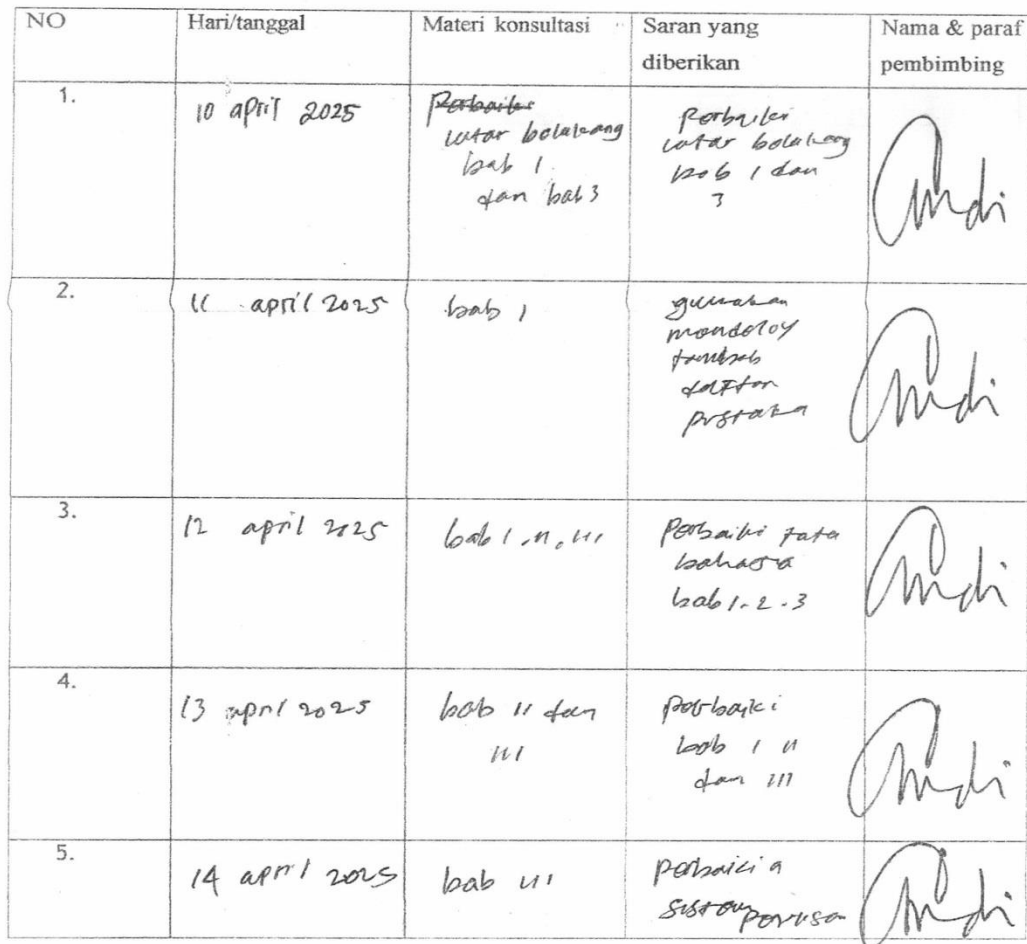 NO Hari/tanggal Materi konsultasi Saran yang diberikan Nama & paraf pembimbing
1. 10 april 2025
Perbaiki
latar belakang
bab 1
dan bab 3
Perbaiki
latar belakang
bab 1 dan
3
2. 11 april 2025
bab 1
gunakan
mendeley
tambah
daftar
pustaka
3. 12 april 2025
bab I, II, III
Perbaiki tata
bahasa
bab 1.2.3
4. 13 april 2025
bab II dan
III
Perbaiki
bab I II
dan III
5. 14 april 2025
bab III